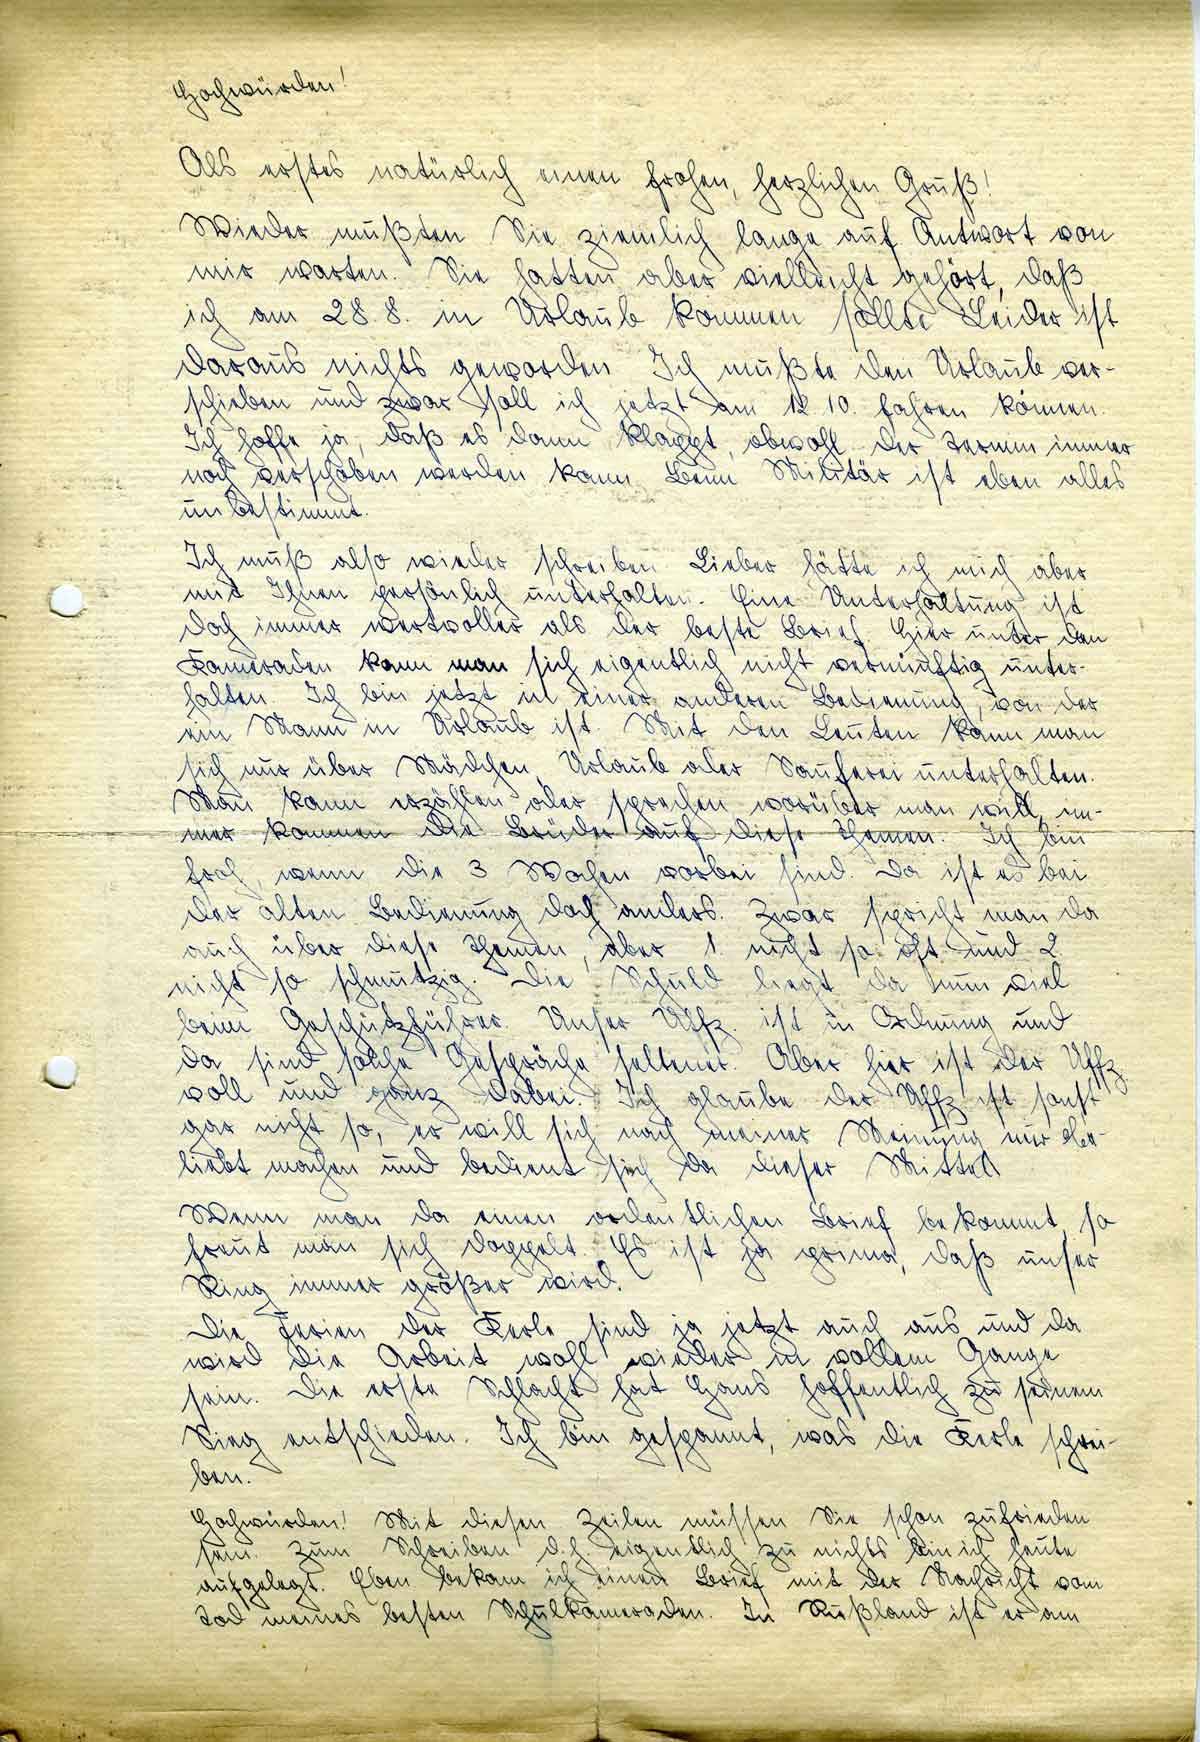 Hochwürden!
Als erstes natürlich einen frohen, herzlichen Gruß!
Wieder mußten Sie ziemlich lange auf Antwort von
mir warten. Sie hatten aber vielleicht gehört, daß
ich am 28.8. in Urlaub kommen sollte. Leider ist
daraus nichts geworden. Ich mußte den Urlaub ver-
schieben und zwar soll ich jetzt am 12.10. fahren können.
Ich hoffe ja, daß es dann klappt, obwohl der Termin immer
noch verschoben werden kann. Beim Militär ist eben alles
unbestimmt.
Ich muß also wieder schreiben. Lieber hätte ich mich aber
mit Ihnen persönlich unterhalten. Eine Unterhaltung ist
doch immer wertvoller als der beste Brief. Hier unter den
Kameraden kann man sich eigentlich nicht vernünftig unter-
halten. Ich bin jetzt in einer anderen Bedienung, von der
ein Mann in Urlaub ist. Mit den Leuten kann man
sich nur über Mädchen, Urlaub oder Sauferei unterhalten.
Man kann erzählen oder sprechen worüber man will, im-
mer kommen die Brüder auf diese Themen. Ich bin
froh, wenn die 3 Wochen vorbei sind. Da ist es bei
der alten Bedienung doch anders. Zwar spricht man da
auch über diese Themen, aber 1. nicht so oft und 2.
nicht so schmutzig. Die Schuld liegt da nun viel
beim Geschützführer. Unser Uffz. ist in Ordnung und
da sind solche Gespräche seltener. Aber hier ist der Uffz.
voll und ganz dabei. Ich glaube der Uffz. ist sonst
gar nicht so, er will sich nach meiner Meinung nur be-
liebt machen und bedient sich da dieser Mittel.
Wenn man da einen ordentlichen Brief bekommt, so
freut man sich doppelt. Es ist ja prima, daß unser
Ring immer größer wird.
Die Ferien der Kerle sind ja jetzt auch aus und da
wird die Arbeit wohl wieder in vollem Gange
sein. Die erste Schlacht hat Hans hoffentlich zu seinem
Sieg entschieden. Ich bin gespannt, was die Kerle schrei-
ben.
Hochwürden! Mit diesen Zeilen müssen Sie schon zufrieden
sein. Zum Schreiben d.h. eigentlich zu nichts bin ich heute
aufgelegt. Eben bekam ich einen Brief mit der Nachricht vom
Tod meines besten Schulkameraden. In Rußland ist er am